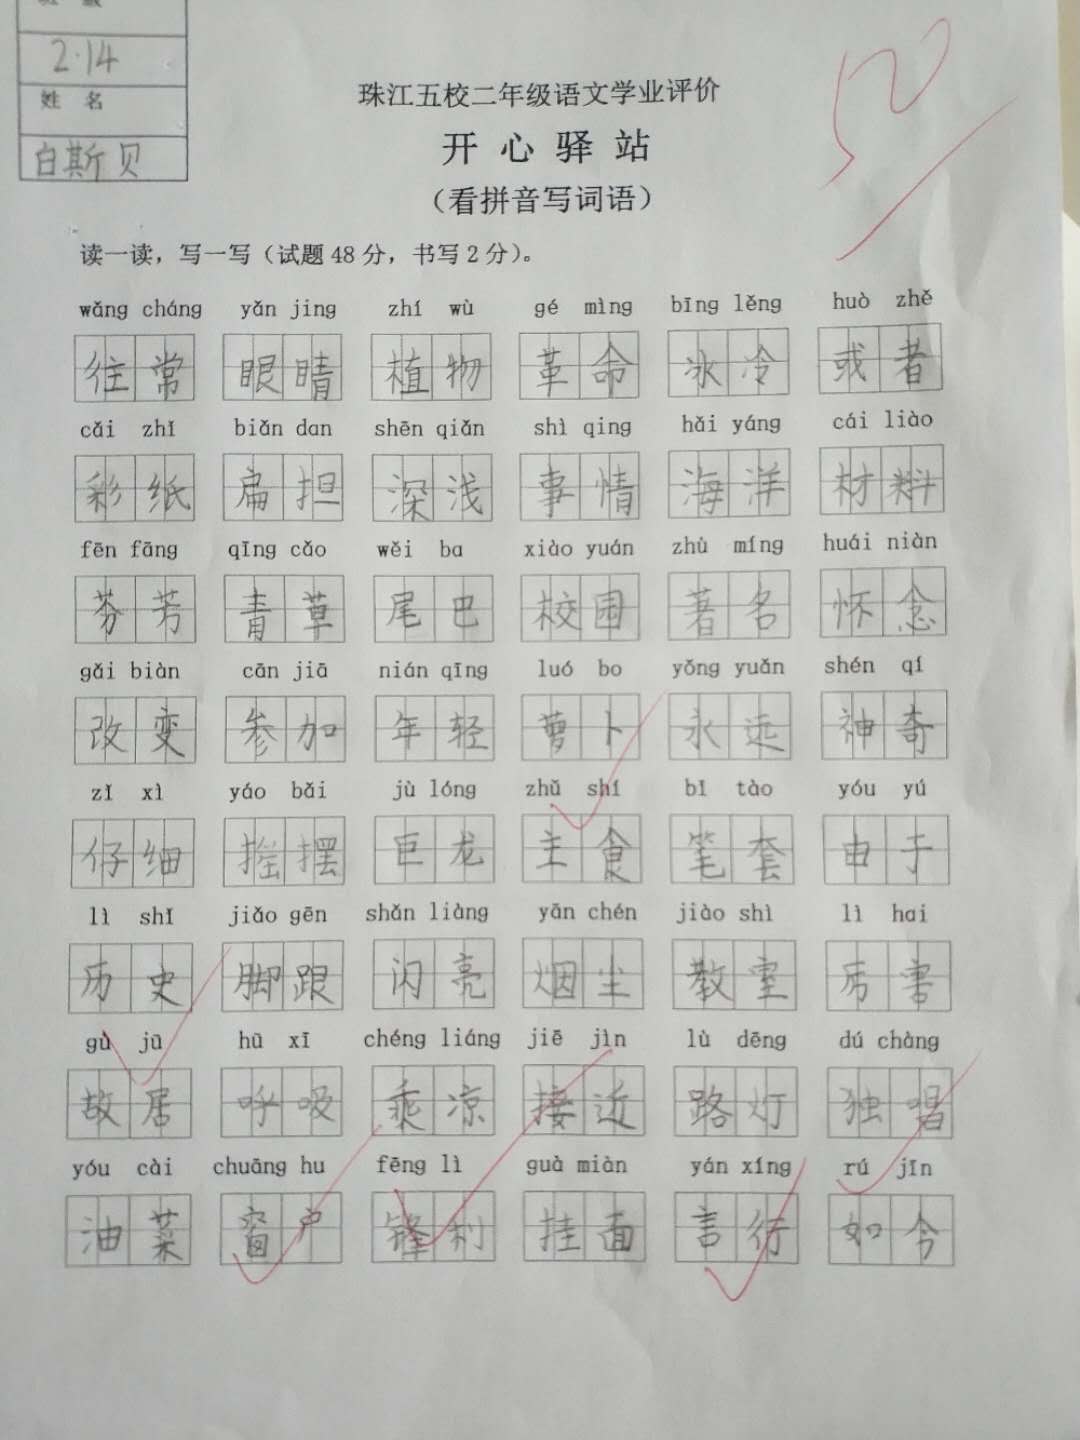 班 级
2.14
姓 名
白斯贝
50
珠江五校二年级语文学业评价
开 心 驿 站
（看拼音写词语）
读一读，写一写（试题48分，书写2分）。
wǎng cháng yǎn jing zhí wù gé mìng bīng lěng huò zhě
往常 眼睛 植物 革命 冰冷 或者
cǎi zhǐ biǎn dan shēn qiǎn shì qing hǎi yáng cái liào
彩纸 扁担 深浅 事情 海洋 材料
fēn fāng qīng cǎo wěi ba xiào yuán zhù míng huái niàn
芬芳 青草 尾巴 校园 著名 怀念
gǎi biàn cān jiā nián qīng luó bo yǒng yuǎn shén qí
改变 参加 年轻 萝卜 永远 神奇
zǐ xì yáo bǎi jù lóng zhǔ shí bǐ tào yóu yú
仔细 摇摆 巨龙 主食 笔套 由于
lì shǐ jiǎo gēn shǎn liàng yān chén jiào shì lì hai
历史 脚跟 闪亮 烟尘 教室 厉害
gù jū hū xī chéng liáng jiē jìn lù dēng dú chàng
故居 呼吸 乘凉 接近 路灯 独唱
yóu cài chuāng hu fēng lì guà miàn yán xíng rú jīn
油菜 窗户 锋利 挂面 言行 如今